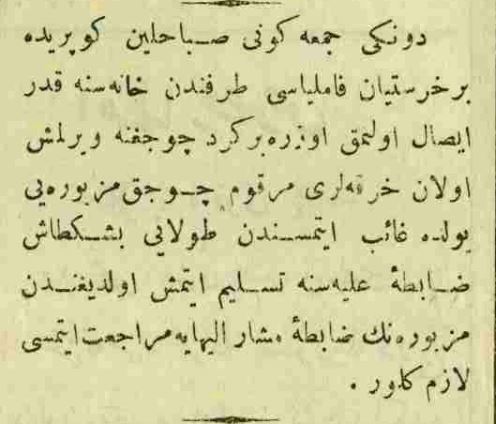 دونكی جمعه كونی صباحلین كوپریده
برخرستیان فاملیاسی طرفندن خانه‌سنه قدر
ایصال اولنمق اوزره‌بركرد چوجغنه ویرلمش
اولان خرقه‌لری مرقوم چوجق‌مزبوره‌یی
یولده غائب ایتمسندن طولایی بشكطاش
ضابطهٔ علیه‌سنه تسلیم ایتمش اولدیغندن
مزبوره‌نك ضابطهٔ مشار الیهایه‌مراجعت‌ایتمسی
لازم‌كلور .